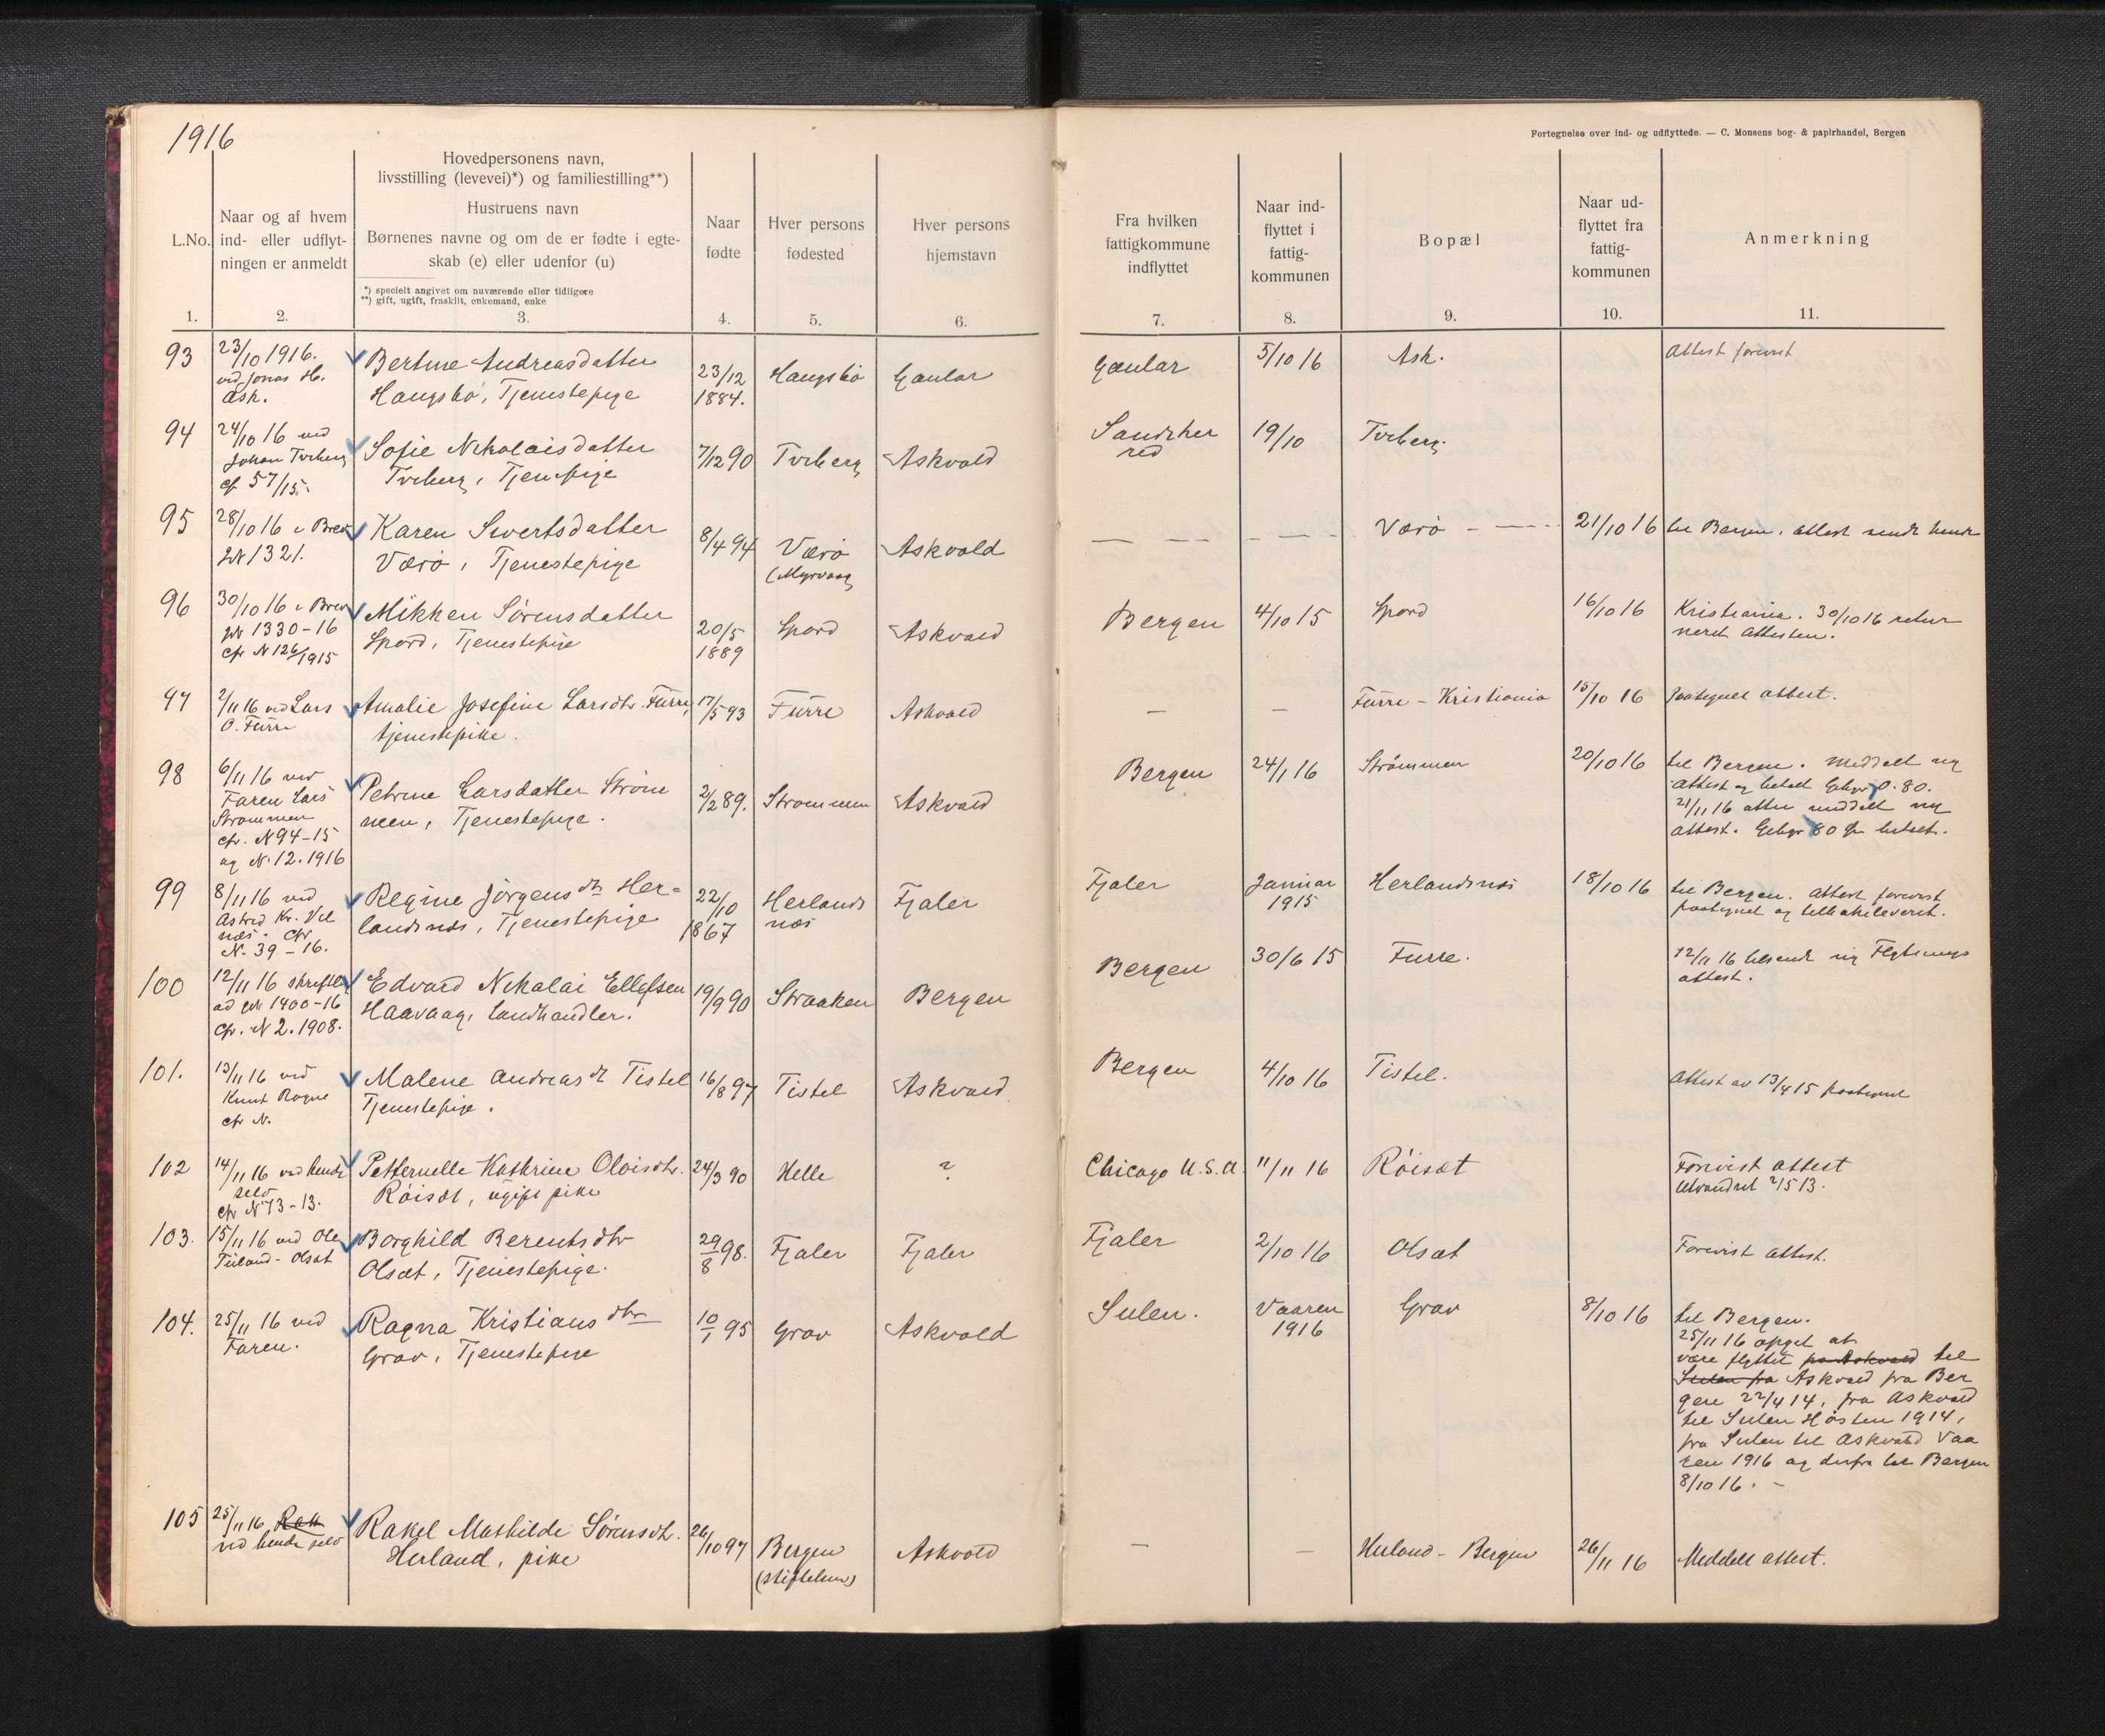 1916
Fortegnelse over ind- og udflyttede. — C. Monsens bog- & papirhandel, Bergen
L.No.
Naar og af hvem
ind- eller udflyt-
ningen er anmeldt
Hovedpersonens navn,
livsstilling (levevei)*) og familiestilling**)
Hustruens navn
Børnenes navne og om de er fødte i egte-
skab (e) eller udenfor (u)
*) specielt angivet om nuværende eller tidligere
**) gift, ugift, fraskilt, enkemand, enke
Naar
fødte
Hver persons
fødested
Hver persons
hjemstavn
Fra hvilken
fattigkommune
indflyttet
Naar ind-
flyttet i
fattig-
kommunen
Bopæl
Naar ud-
flyttet fra
fattig-
kommunen
Anmerkning
1. 2. 3. 4. 5. 6. 7. 8. 9. 10. 11.
93
23/10 1916.
ved Jonas H.
Ask.
Bertine Andreasdatter
Haugsbø, Tjenestepige
23/12
1884.
Haugsbø
Gaular
Gaular
5/10 16
Ask.
Attest forevist
94
24/10 16 ved
Johan Tveberg
cf 57/15.
Sofie Nikolaisdatter
Tveberg, Tjenpige
7/12 90
Tveberg
Askvold
Sandsher
red
19/10
Tveberg
95
28/10 16 i Brev
JN 1321.
Karen Sivertsdatter
Værø, Tjenestepige
8/4 94
Værø
(Myrvaag
Askvold
Værø
21/10 16
til Bergen. Attest sendt hende
96
30/10 16 i Brev
JN 1330-16
cfr N 126/1915
Mikken Sørensdatter
Spord, Tjenestepige
20/5
1889
Spord
Askvold
Bergen
4/10 15
Spord
16/10 16
Kristiania. 30/10 16 retur
neret Attesten.
97
2/11 16 ved Lars
O. Furre
Amalie Josefine Larsdtr. Furre,
tjenestepike.
17/5 93
Furre
Askvold
—
—
Furre - Kristiania
15/10 16
paategnet attest.
98
6/11 16 ved
Faren Lars
Strømmen
cfr. N 94-15
og N. 12. 1916
Petrine Larsdatter Strøm
men, Tjenestepige.
2/2 89.
Strømmen
Askvold
Bergen
24/1 16
Strømmen
20/10 16
til Bergen. Meddelt ny
attest og betalt Gebyr 0.80.
21/11 16 atter meddelt ny
attest. Gebyr 80 ør betalt.
99
8/11 16 ved
Astrid Kr. Vil
næs. cfr
N. 39-16.
Regine Jørgensdtr Her=
landsnæs, Tjenestepige
22/10
1867
Herlands
næs
Fjaler
Fjaler
Januar
1915
Herlandsnæs
18/10 16
til Bergen. Attest forevist
paategnet og tilbakeleveret.
100
12/11 16 skriftlig
ad JN 1400-16
cfr. N 2. 1908.
Edvard Nikolai Ellefsen
Haavaag, Landhandler.
19/9 90
Straaken
Bergen
Bergen
30/6 15
Furre.
12/11 16 tilsendt ny Flytnings
attest.
101.
13/11 16 ved
Knut Rogne
cfr N.
Malene Andreasdt Tistel
Tjenestepige.
16/8 97
Tistel
Askvold
Bergen
4/10 16
Tistel.
Attest av 13/4 15 paategnet
102
14/11 16 ved hende
selv
cfr N 73-13.
Petternelle Kathrine Olaisdtr.
Røisæt, ugift pike
24/3 90
Helle
?
Chicago U.S.A.
11/11 16
Røisæt
Forevist attest
Utvandret 2/5 13.
103.
15/11 16 ved Ole
Olsæt
Borghild Berentsdtr
Olsæt, Tjenestepige.
29/8 98.
Fjaler
Fjaler
Fjaler
2/10 16
Olsæt
Forevist attest.
104.
25/11 16 ved
Faren.
Ragna Kristiansdtr
Grov, Tjenestepige
10/1 95
Grov
Askvold
Sulen.
Vaaren
1916
Grov
8/10 16
til Bergen.
25/11 16 opgit at
være flyttet fra Askvold til
Sulen fra Askvold fra Ber
gen 22/4 14, fra Askvold
til Sulen Høsten 1914,
fra Sulen til Askvold Vaa
ren 1916 og derfra til Bergen
8/10 16. -
105
25/11 16 Rak
ved hende selv
Rakel Mathilde Sørensdtr.
Herland, pike
26/10 97
Bergen
(Stiftelsen)
Askvold
—
—
Herland - Bergen
26/11 16
Meddelt attest.